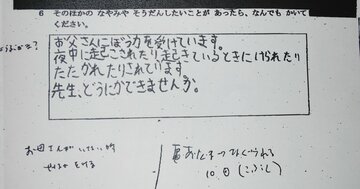 6 そのほかの なやみや そうだんしたいことが あったら、なんでも かいて
ください。
お父さんにぼう力を受けています。
夜中に起こされたり、起きているときにけられたり
たたかれたりされています。
先生、どうにかできませんか。
お母さんがいない時
10回(こぶし)